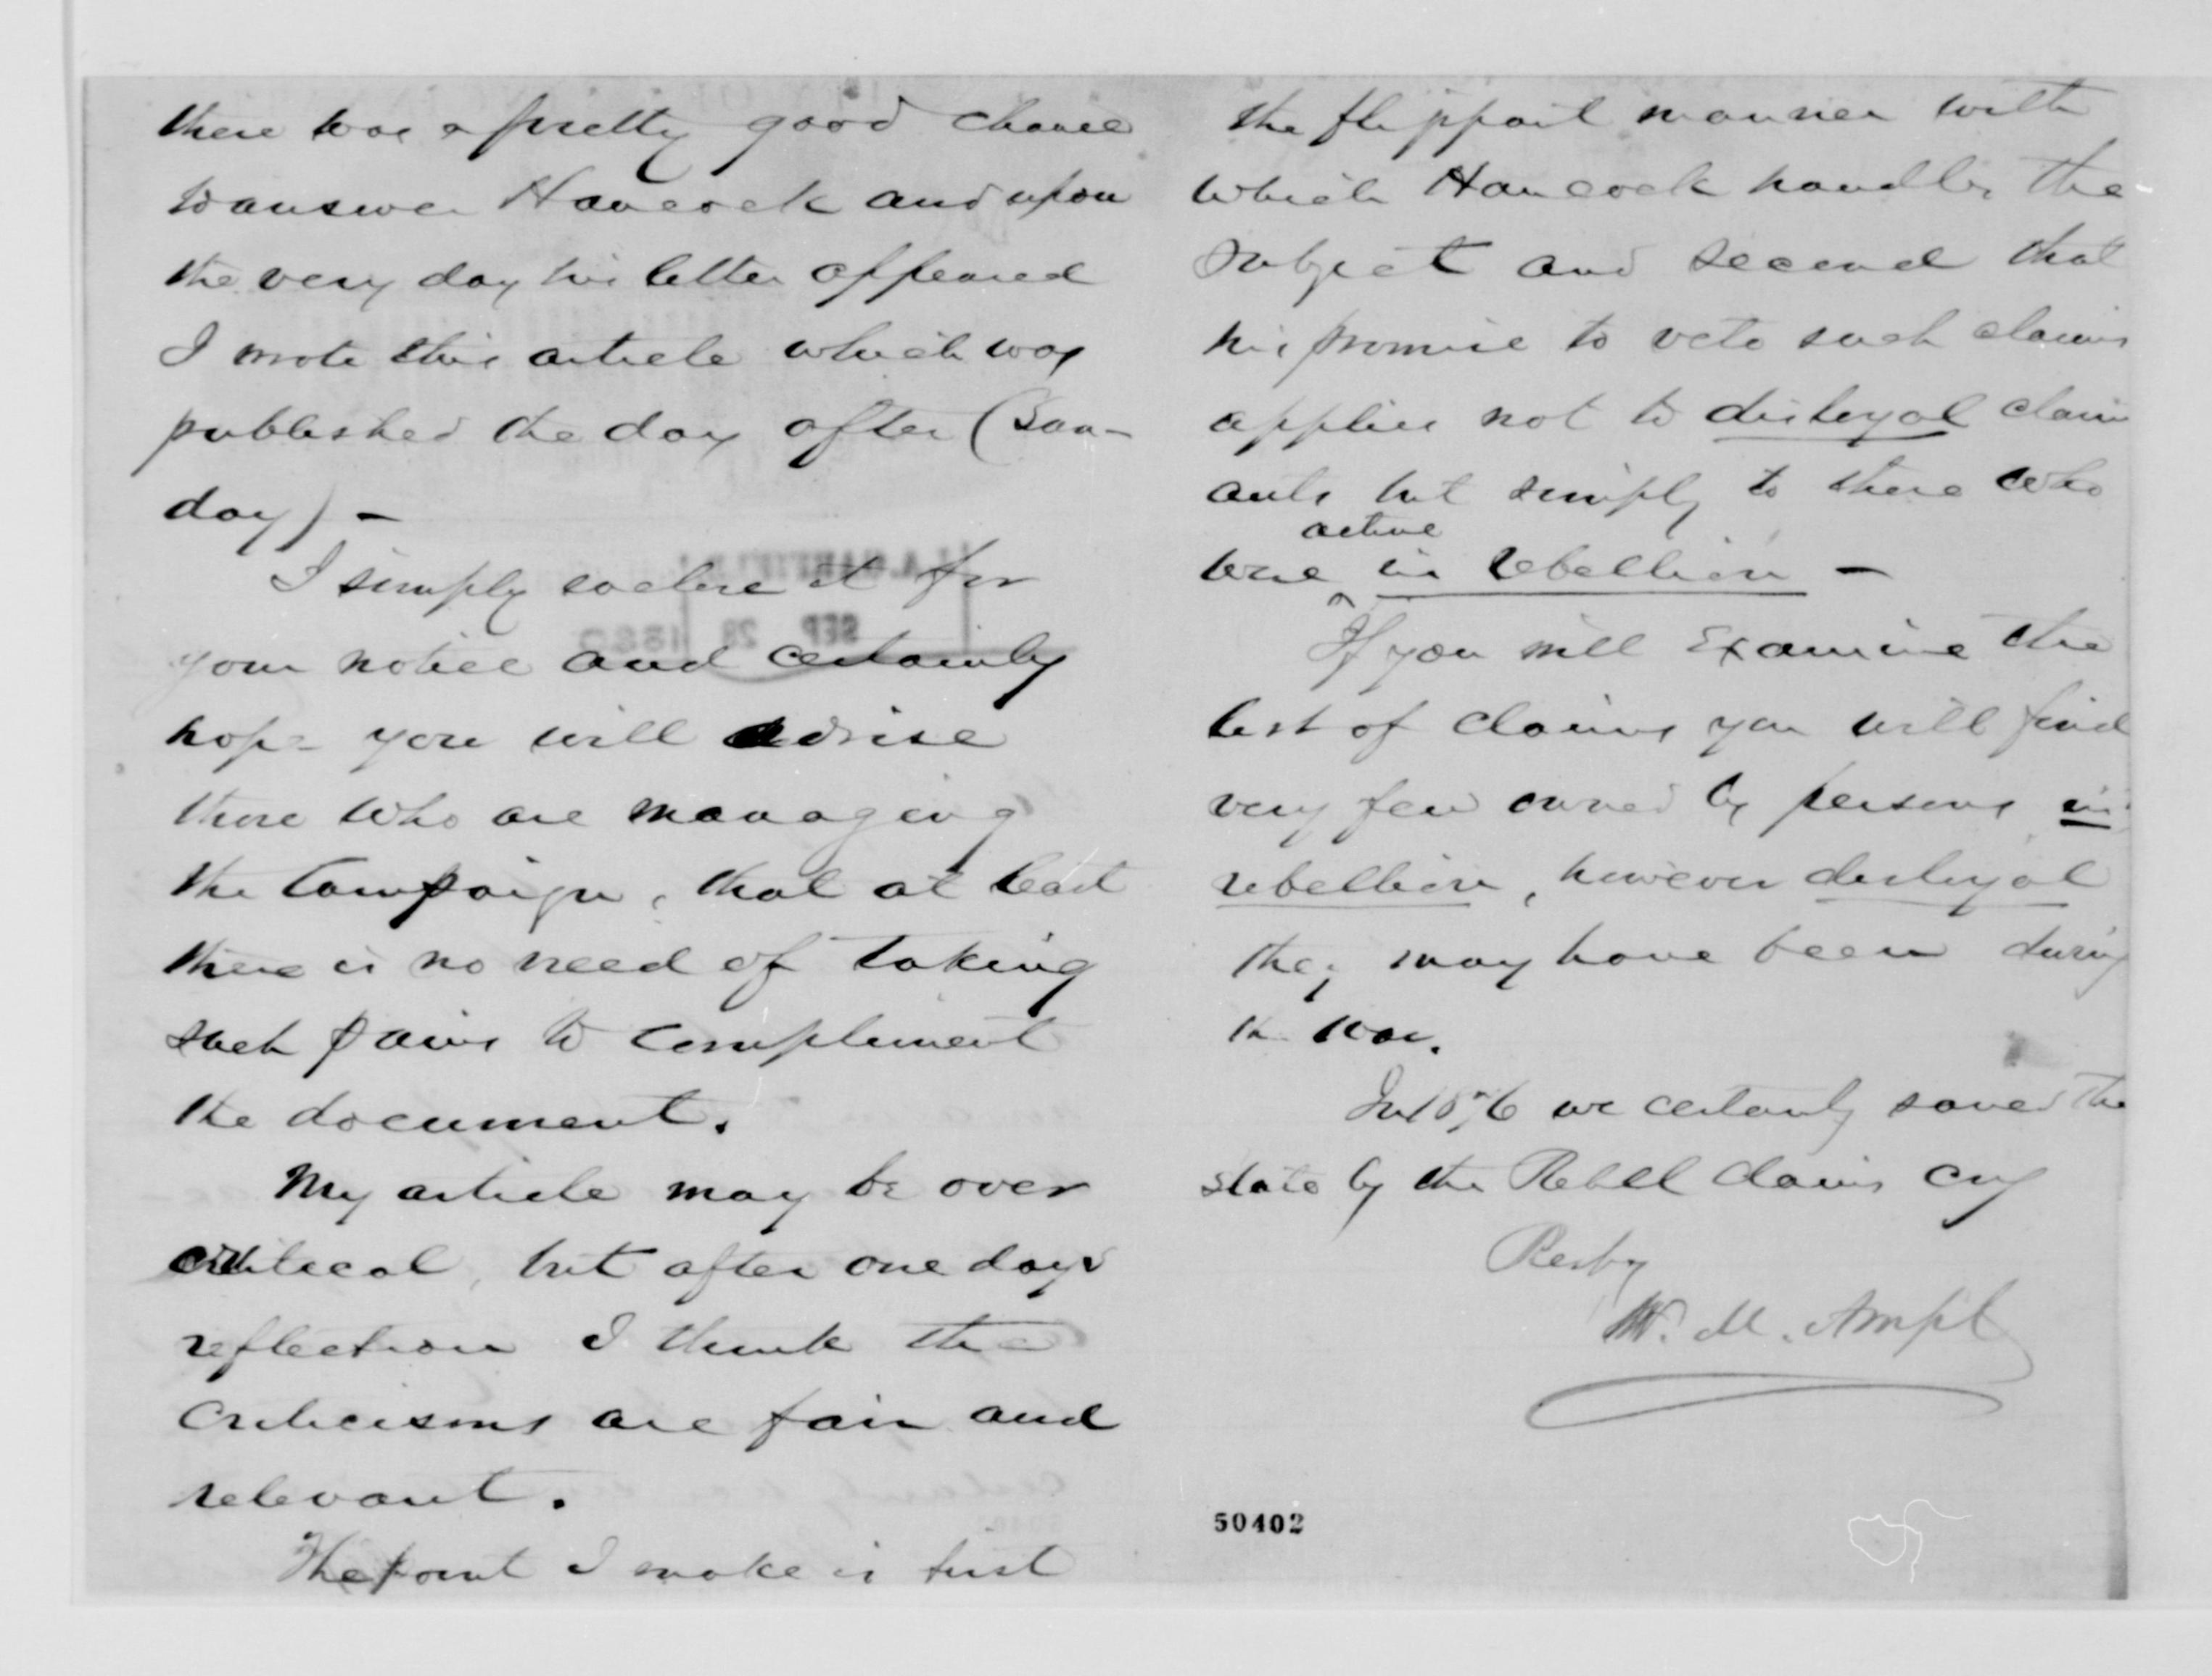 there was a pretty good chance
to answer Hancock and upon
the very day his letter appeared
I wrote this article which was
published the day after (Sun-
day) -
I simply enclose it for
your notice and certainly
hope you will advise
those who are managing
the Campaign, that at least
there is no need of taking
such pains to compliment
the document.
My article may be over
critical, but after one days
reflection I think the
criticisms are fair and
relevant.
The point I make is first
the flippant manner with
which Hancock handles the
subject and second that
his promise to veto such claims
applies not to disloyal claim
ants but simply to those who
active
were in rebellion -
If you will Examine the
list of claims you will find
very few owned by persons in
rebellion, however disloyal
they may have been during
the war.
In 1876 we certainly saved the
state by the Rebel claims cry
Resby
W. M. Ampt
J.A. GARFIELD
SEP 28 1880
50402